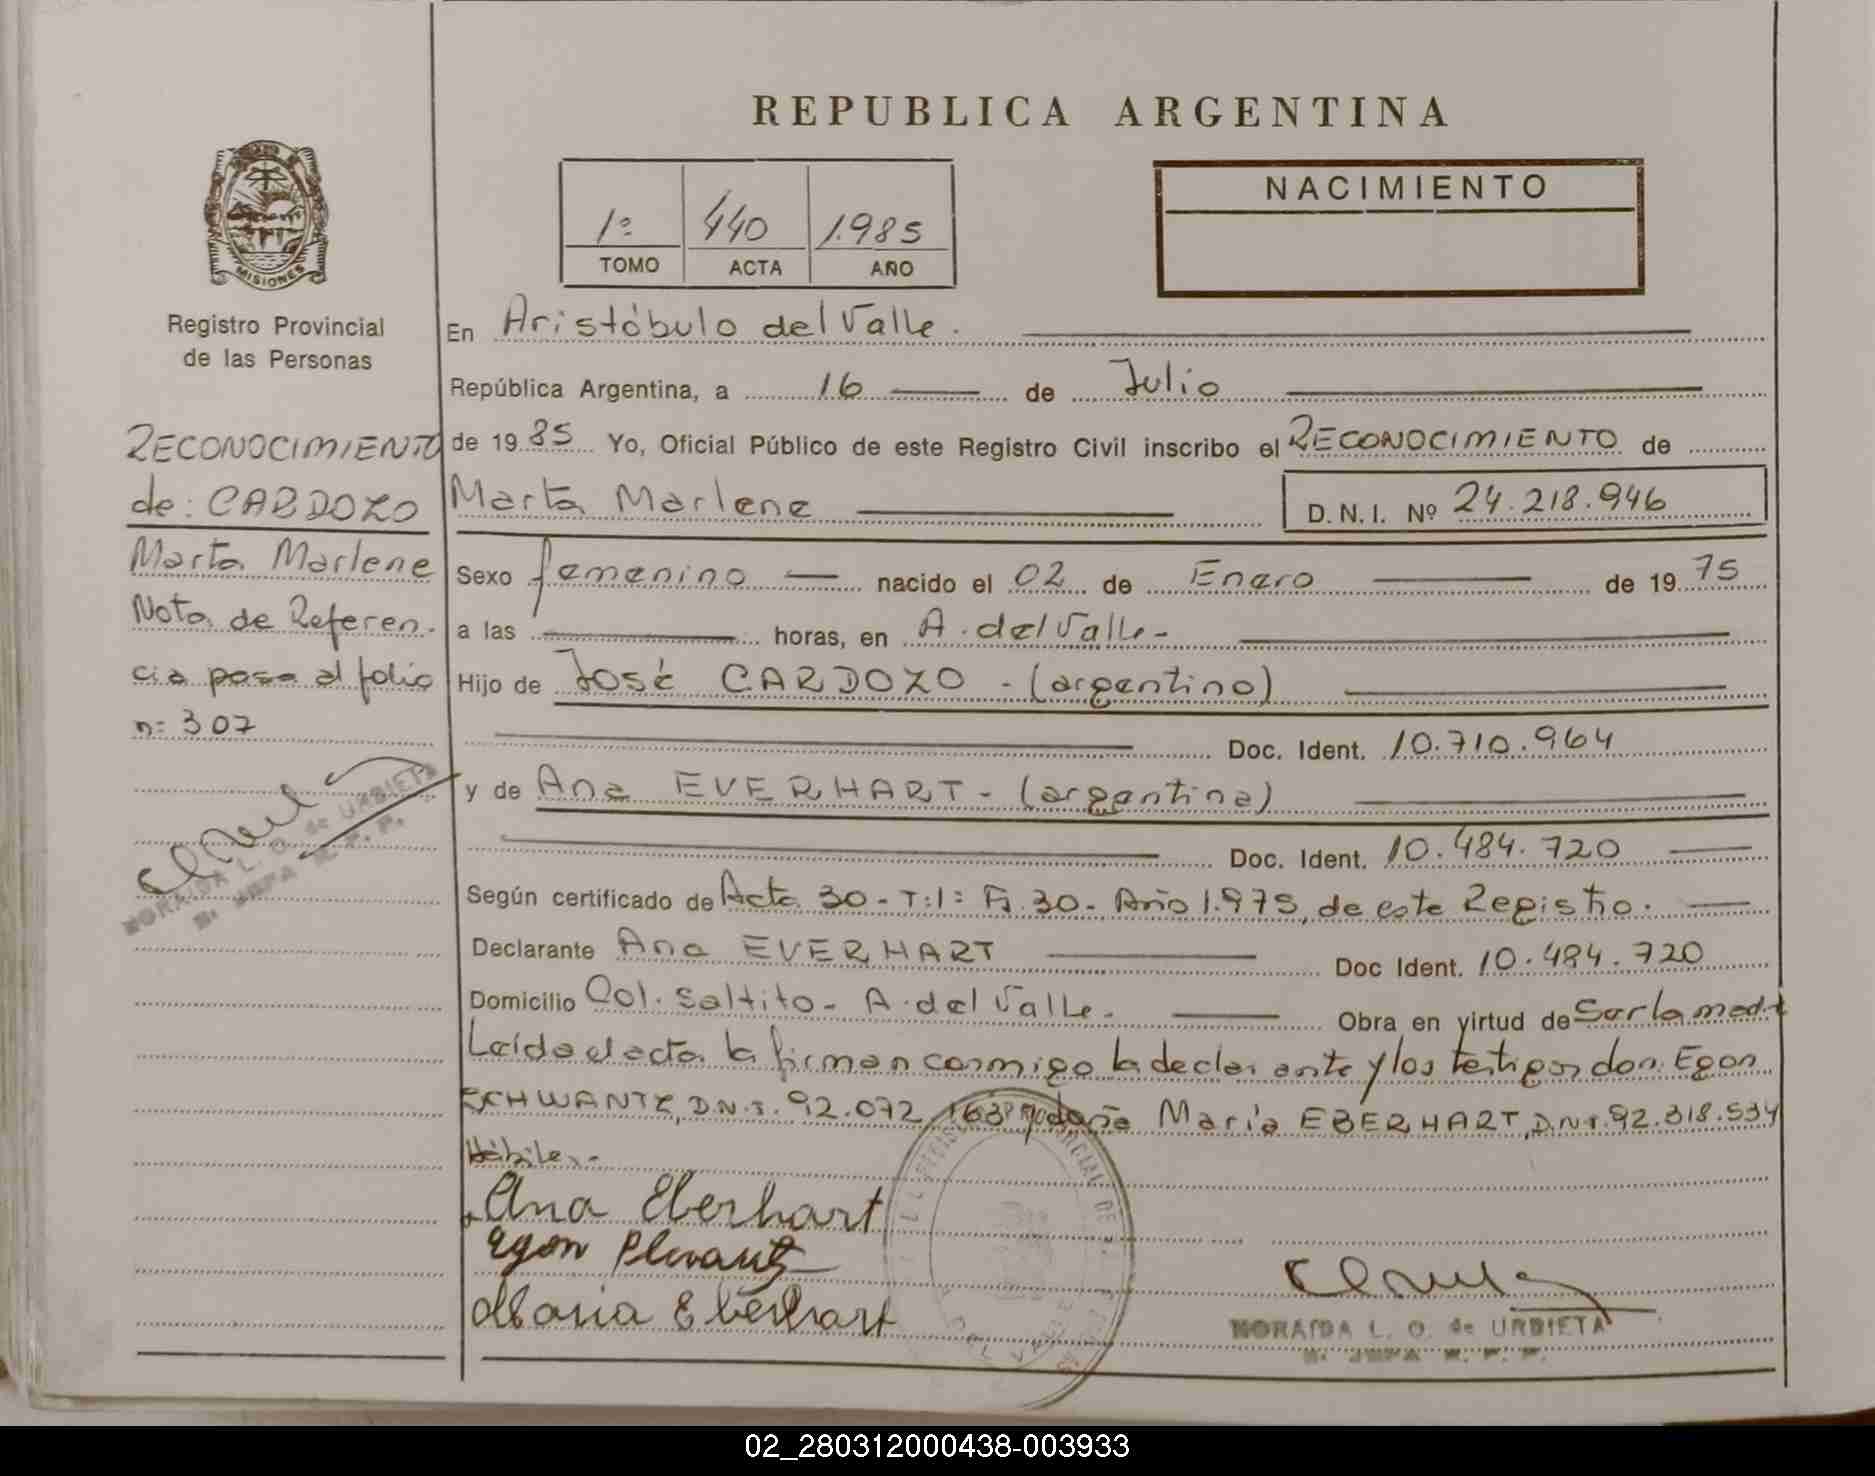 REPUBLICA ARGENTINA
NACIMIENTO
1º 440 1.985
TOMO ACTA AÑO
MISIONES
Registro Provincial
de las Personas
RECONOCIMIENTO
de: CARDOZO
Marta Marlene
Nota de Referen-
cia pasa al folio
nº 307
NORAIDA L. O. de URBIETA
En Aristóbulo del Valle.
República Argentina, a 16 de Julio
de 1985 Yo, Oficial Público de este Registro Civil inscribo el RECONOCIMIENTO de
Marta Marlene D.N.I. Nº 24.218.946
Sexo femenino nacido el 02 de Enero de 1975
a las horas, en A. del Valle-
Hijo de José CARDOZO - (argentino)
Doc. Ident. 10.710.964
y de Ana EVERHART - (argentina)
Doc. Ident. 10.484.720
Según certificado de Acta 30 - T:1º Fº 30 - Año 1.975, de este Registro.
Declarante Ana EVERHART Doc Ident. 10.484.720
Domicilio Col. Saltito - A. del Valle. Obra en virtud de Ser la madre
Leída el acta la firman conmigo la declarante y los testigos don Egon
SCHWANTZ, D.N.I. 92.072.163 y doña María EBERHART, D.N.I. 92.318.534
Hábiles.-
Ana Eberhart
Egon
Maria Eberhart
NORAIDA L. O. de URBIETA
02_280312000438-003933